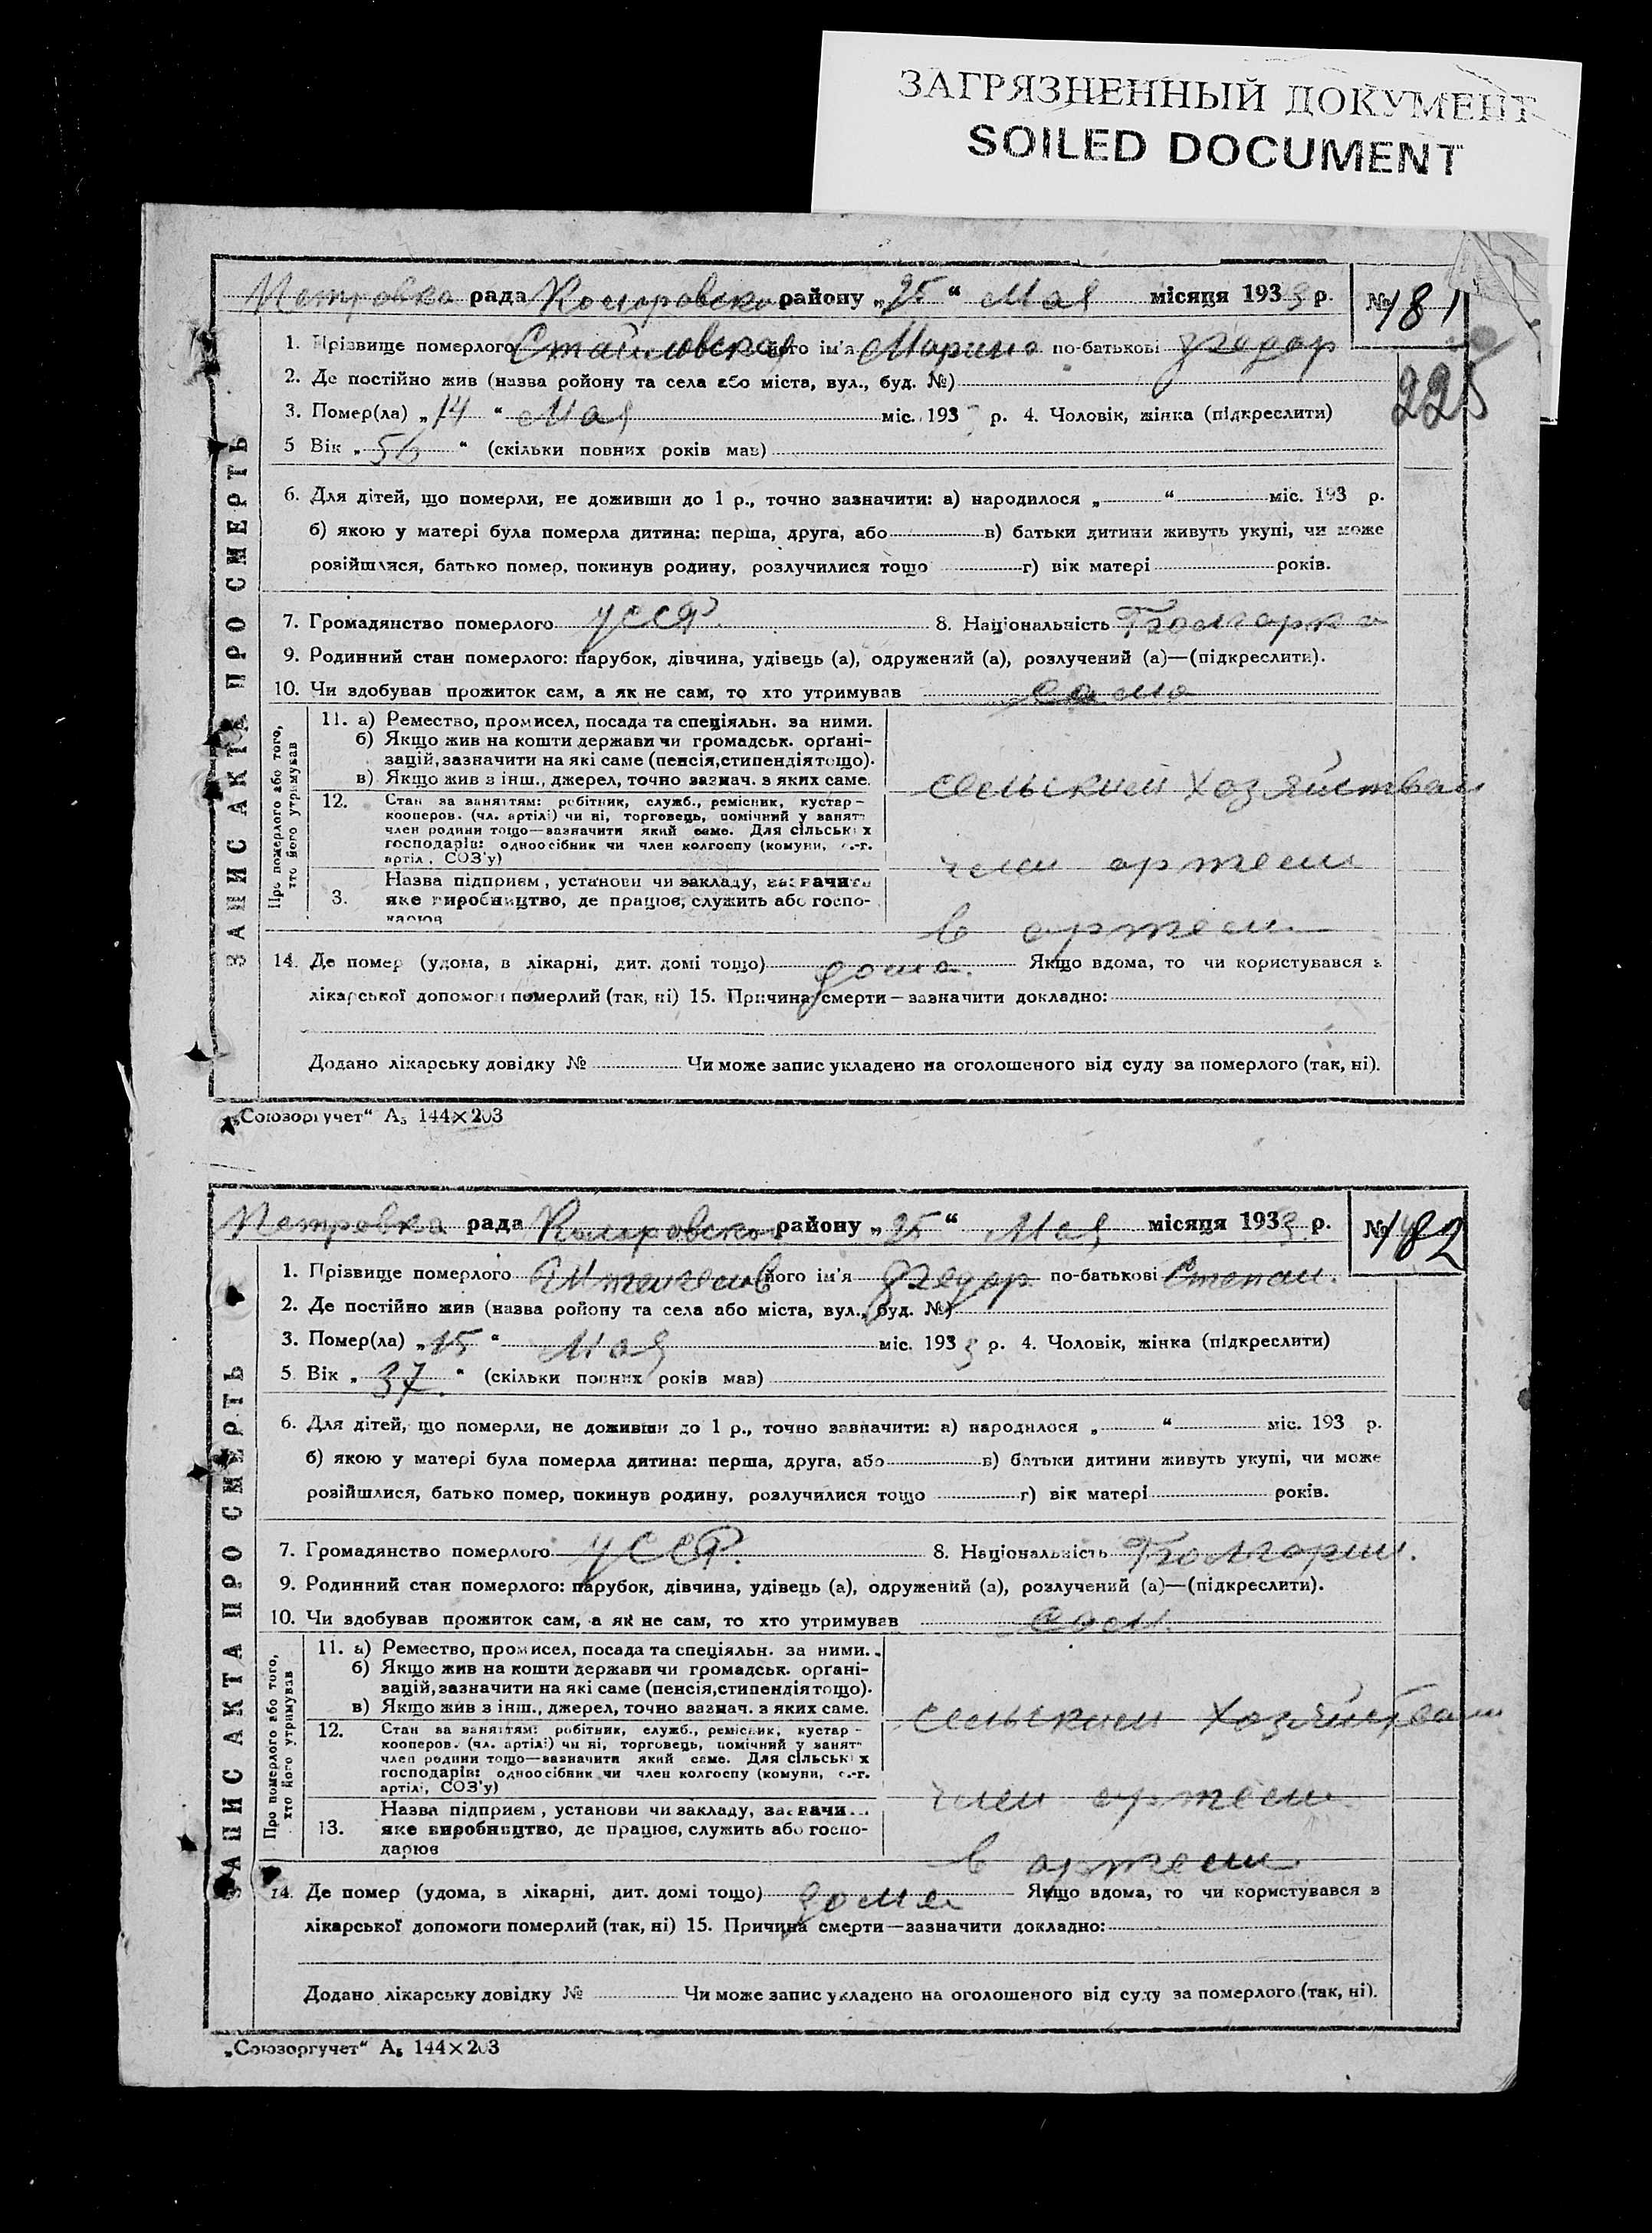 ЗАГРЯЗНЕННЫЙ ДОКУМЕНТ
SOILED DOCUMENT
Петровка рада района „25“ Мая місяця 1933 р. № 181
225
1. Прізвище померлого його ім'я Марина по-батькові Федор
2. Де постійно жив (назва ройону та села або міста, вул., буд. №)
3. Помер(ла) „14“ Мая міс. 193 р. 4. Чоловік, жінка (підкреслити)
5 Вік „56“ (скільки повних років мав)
6. Для дітей, що померли, не доживши до 1 р., точно зазначити: а) народилося „ “ міс. 193 р.
б) якою у матері була померла дитина: перша, друга, або в) батьки дитини живуть укупі, чи може
розійшлися, батько помер, покинув родину, розлучилися тощо г) вік матері років.
7. Громадянство померлого УССР. 8. Національність Болгарка
9. Родинний стан померлого: парубок, дівчина, удівець (а), одружений (а), розлучений (а)—(підкреслити).
10. Чи здобував прожиток сам, а як не сам, то хто утримував сама
ЗАПИС АКТА ПРО СМЕРТЬ
Про померлого або того,
хто його утримував
11. а) Ремество, промисел, посада та спеціяльн. за ними.
б) Якщо жив на кошти держави чи громадськ. орґані-
зацій, зазначити на які саме (пенсія, стипендія тощо).
в) Якщо жив з інш., джерел, точно зазнач. з яких саме.
сельским хозяйствам
12. Стан за заняттям: робітник, служб., ремісник, кустар-
кооперов. (чл. артілі) чи ні, торговець, помічний у занят-
член родини тощо—зазначити який саме. Для сільських
господарів: одноосібник чи член колгоспу (комуни, с.-г.
артіл , СОЗ'у)
член артели
3. Назва підприєм , установи чи закладу, зазначити
яке виробництво, де працює, служить або госпо-
дарює
в артели
14. Де помер (удома, в лікарні, дит. домі тощо) дома. Якщо вдома, то чи користувався з
лікарської допомоги померлий (так, ні) 15. Причина смерти — зазначити докладно:
Додано лікарську довідку № Чи може запис укладено на оголошеного від суду за померлого (так, ні).
„Союзоргучет“ А₅ 144×203
Петровка рада району „25“ Мая місяця 1933 р. № 182
1. Прізвище померлого його ім'я Федор по-батькові Степан.
2. Де постійно жив (назва ройону та села або міста, вул., буд. №)
3. Помер(ла) „15“ Мая міс. 1933 р. 4. Чоловік, жінка (підкреслити)
5 Вік „37.“ (скільки повних років мав)
6. Для дітей, що померли, не доживши до 1 р., точно зазначити: а) народилося „ “ міс. 193 р.
б) якою у матері була померла дитина: перша, друга, або в) батьки дитини живуть укупі, чи може
розійшлися, батько помер, покинув родину, розлучилися тощо г) вік матері років.
7. Громадянство померлого УССР. 8. Національність Болгарин.
9. Родинний стан померлого: парубок, дівчина, удівець (а), одружений (а), розлучений (а)—(підкреслити).
10. Чи здобував прожиток сам, а як не сам, то хто утримував сам.
ЗАПИС АКТА ПРО СМЕРТЬ
Про померлого або того,
хто його утримував
11. а) Ремество, промисел, посада та спеціяльн. за ними.
б) Якщо жив на кошти держави чи громадськ. орґані-
зацій, зазначити на які саме (пенсія, стипендія тощо).
в) Якщо жив з інш., джерел, точно зазнач. з яких саме.
сельским хозяйствам
12. Стан за заняттям: робітник, служб., ремісник, кустар-
кооперов. (чл. артілі) чи ні, торговець, помічний у занят-
член родини тощо—зазначити який саме. Для сільських
господарів: одноосібник чи член колгоспу (комуни, с.-г.
артілі, СОЗ'у)
член артели
13. Назва підприєм , установи чи закладу, зазначи...
яке виробництво, де працює, служить або госпо-
дарює
в артели
14. Де помер (удома, в лікарні, дит. домі тощо) дома Якщо вдома, то чи користувався з
лікарської допомоги померлий (так, ні) 15. Причина смерти—зазначити докладно:
Додано лікарську довідку № Чи може запис укладено на оголошеного від суду за померлого (так, ні).
„Союзоргучет“ А₅ 144×203